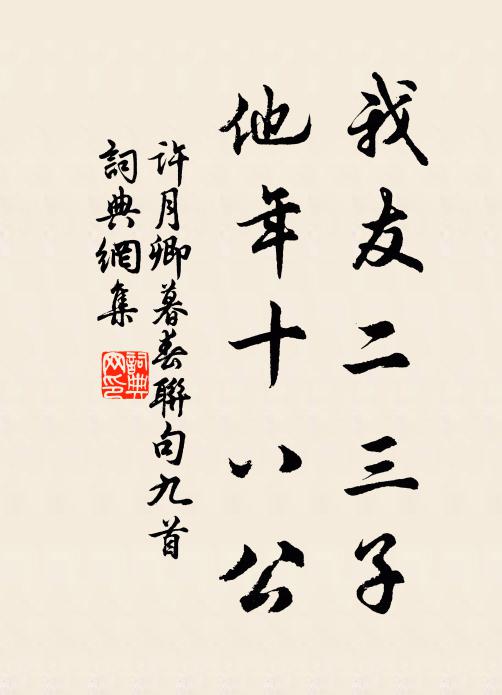 我友二三子
他年十八公
許月卿暮春聯句九首
詞典網集
詞典網印